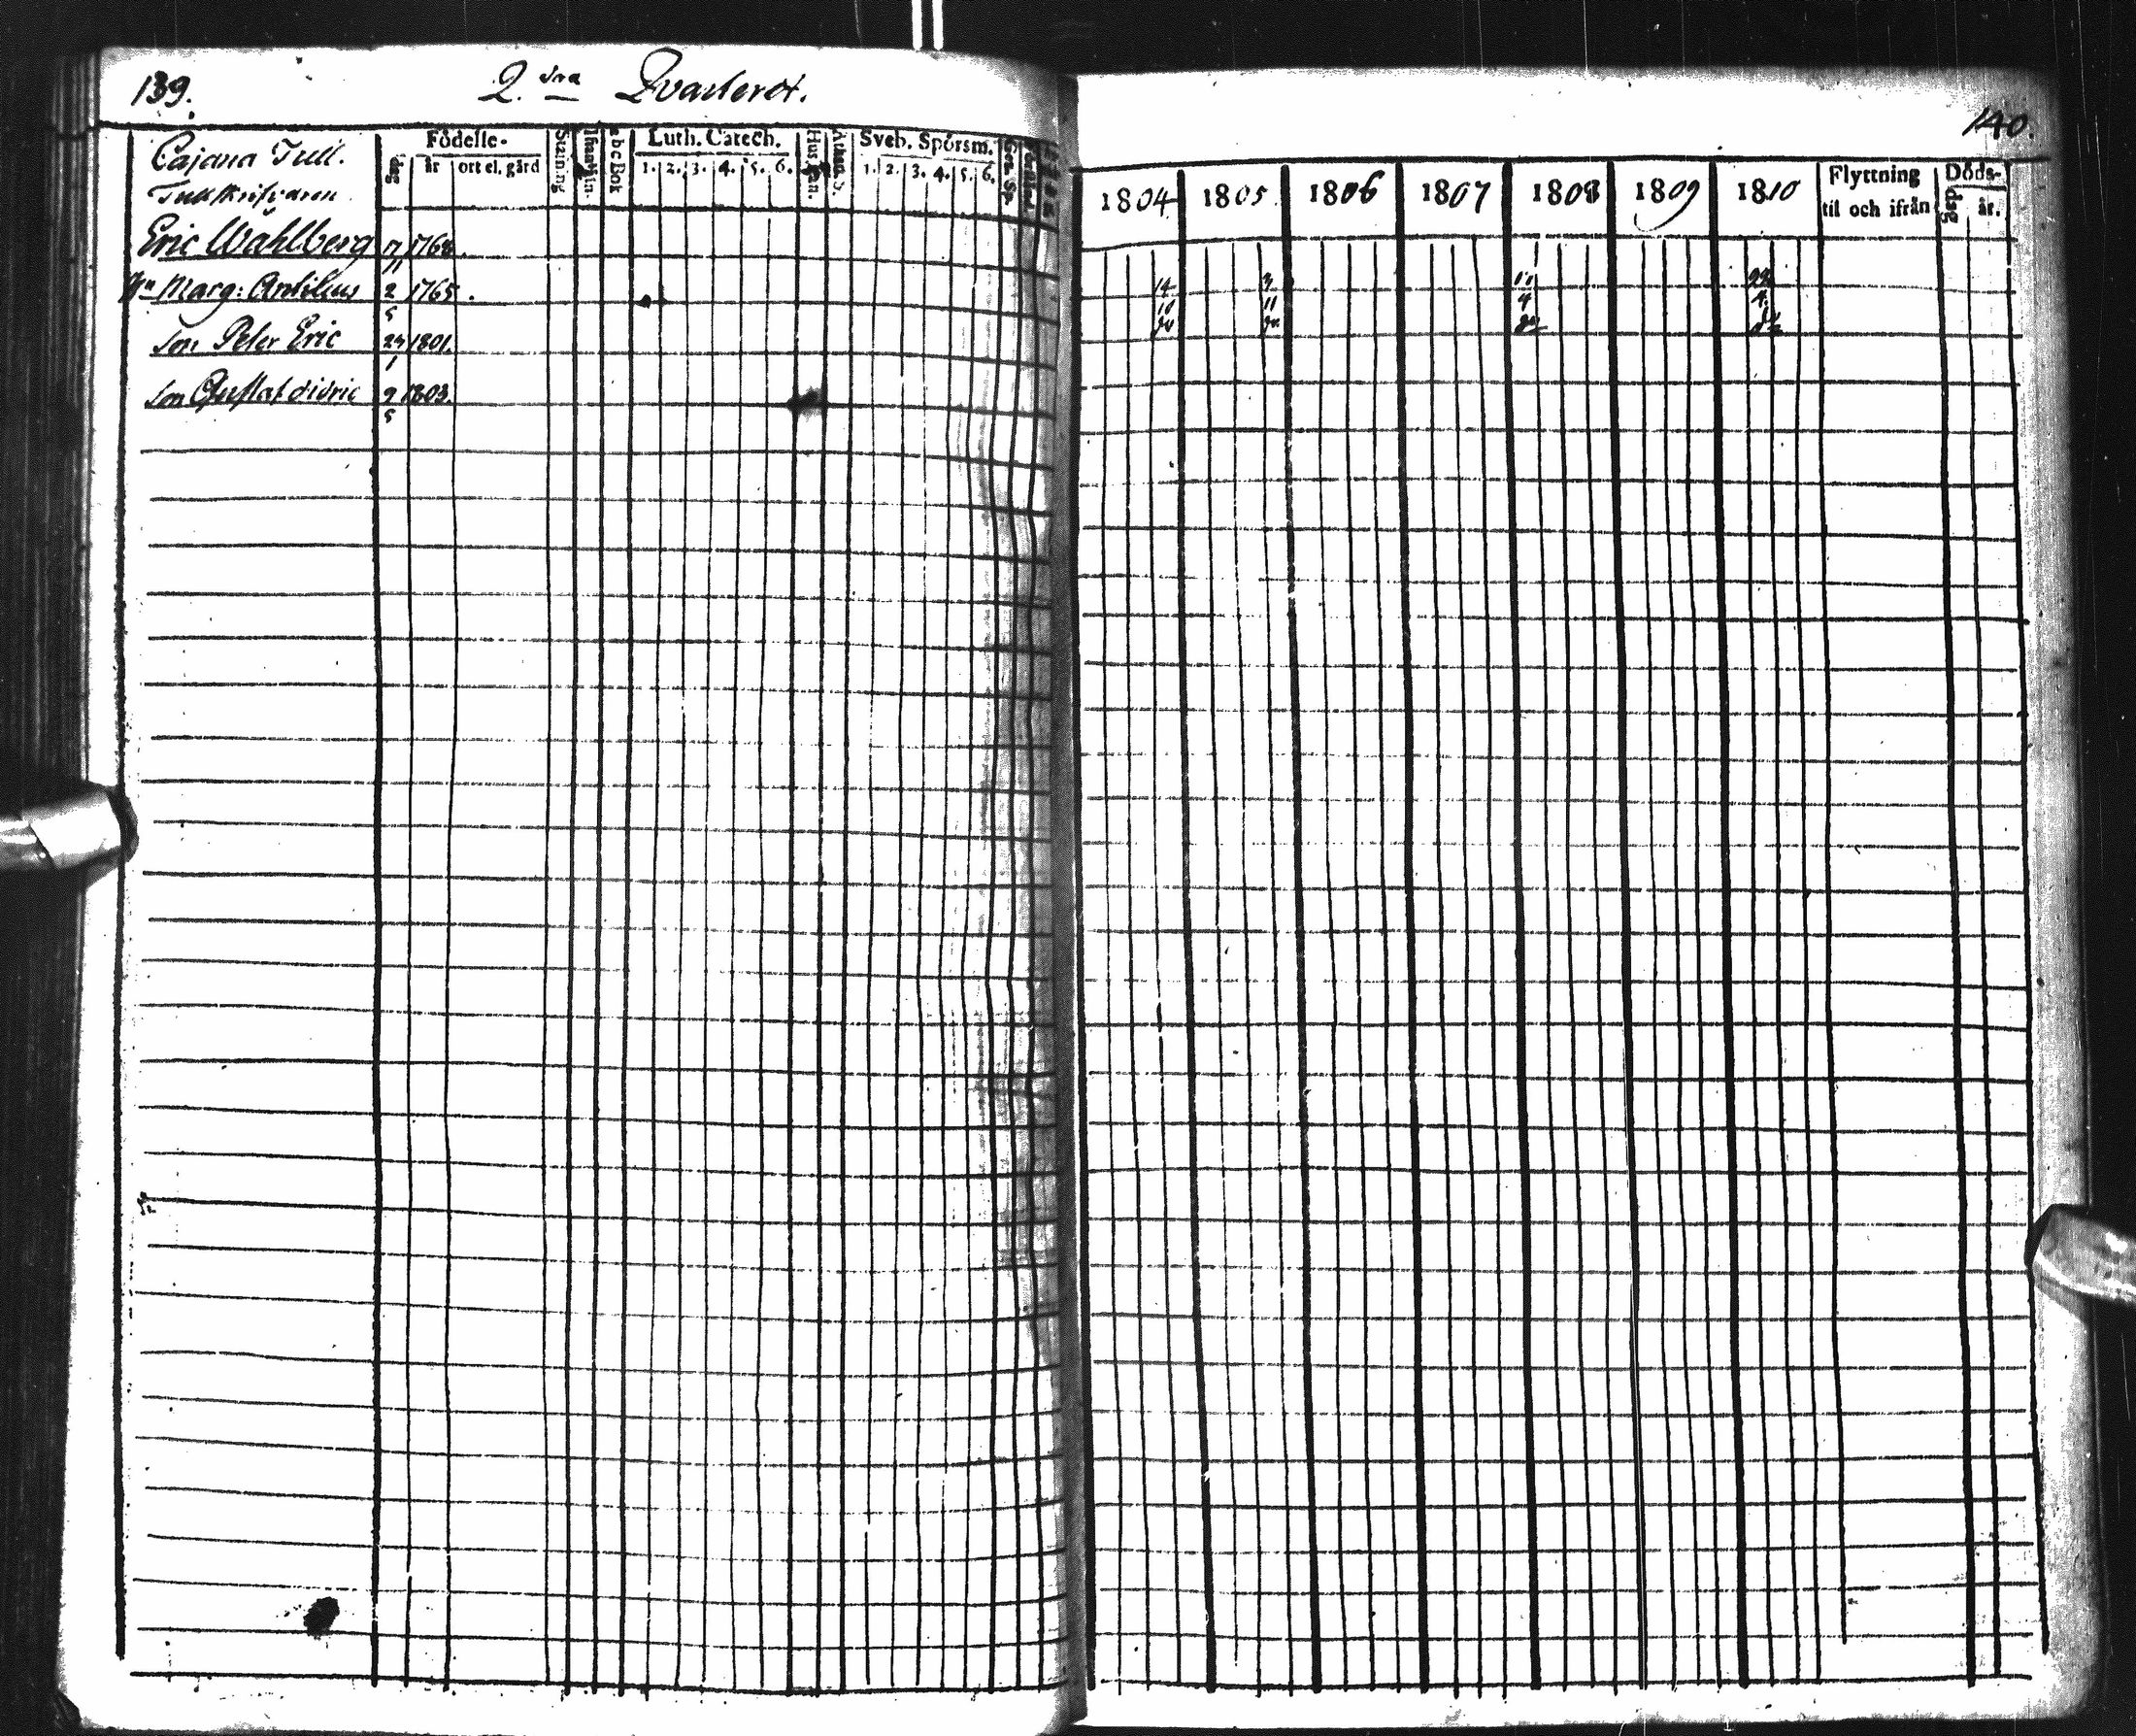 139. 2. dra Qvarteret.
Cajana Tull.
Tullskrifvaren
Födelse-
dag år ort el. gård
abc Bok
Luth. Catech.
1. 2. 3. 4. 5. 6.
Sveb. Spörsm.
1. 2. 3. 4. 5. 6.
Eric Wahlberg 17/11 1768.
Marg: 2/5 1765.
Son Peter Eric 24/1 1801.
Son Gustaf Didric 9/5 1803.
140.
1804 1805 1806 1807 1808 1809 1810
Flyttning
til och ifrån
Döds-
dag år.
14 3 11 22
10 11 4 4